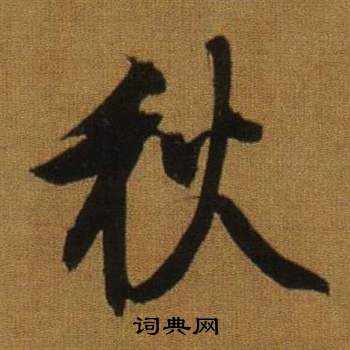 秋
词典网